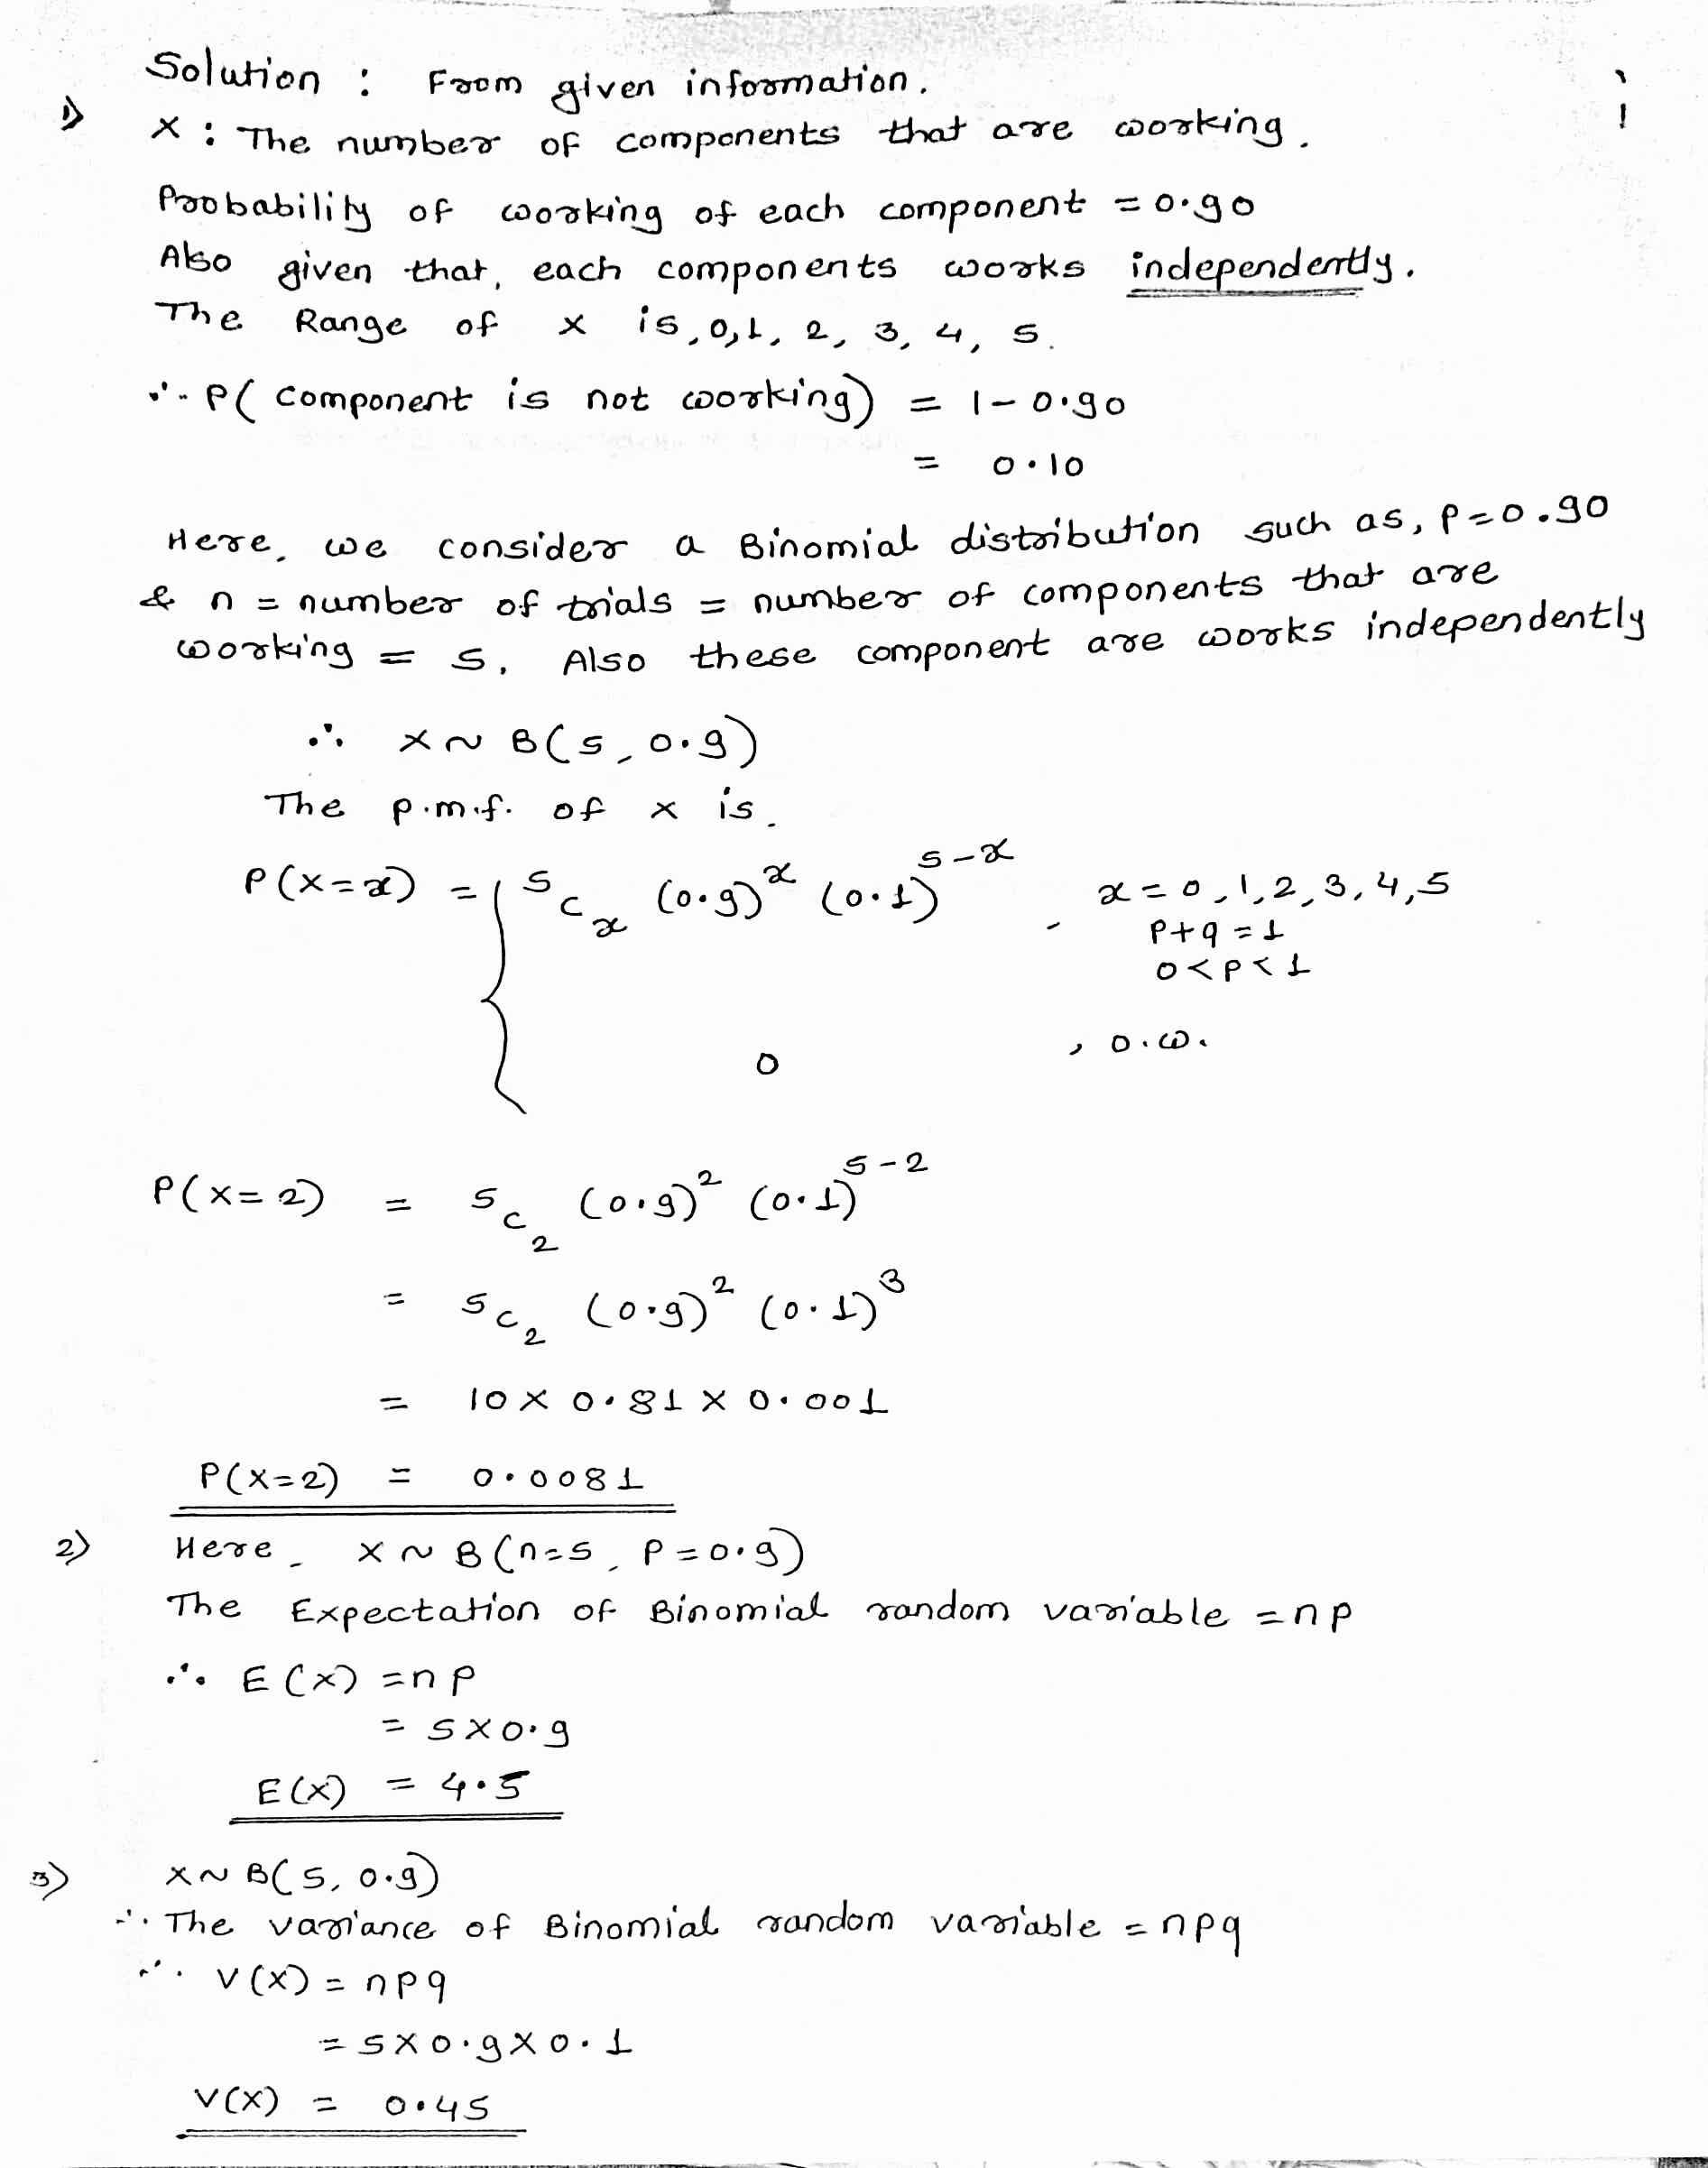 Solution : From given information.
1) X : The number of components that are working.
Probability of working of each component = 0.90
Also given that, each components works independently.
The Range of X is, 0, 1, 2, 3, 4, 5.
∴ P( component is not working) = 1 - 0.90
= 0.10
Here, we consider a Binomial distribution such as, P = 0.90
& n = number of trials = number of components that are
working = 5. Also these component are works independently
∴ X ~ B(5, 0.9)
The p.m.f. of X is,
P(X=x) = { 5Cₓ (0.9)ˣ (0.1)⁵⁻ˣ , x = 0, 1, 2, 3, 4, 5
P+q = 1
0<P<1
0 , o.w.
P(X=2) = 5C₂ (0.9)² (0.1)⁵⁻²
= 5C₂ (0.9)² (0.1)³
= 10 × 0.81 × 0.001
P(X=2) = 0.0081
2) Here, X ~ B(n=5, P=0.9)
The Expectation of Binomial random variable = np
∴ E(X) = np
= 5×0.9
E(X) = 4.5
3) X ~ B(5, 0.9)
∴ The variance of Binomial random variable = npq
∴ V(X) = npq
= 5×0.9×0.1
V(X) = 0.45